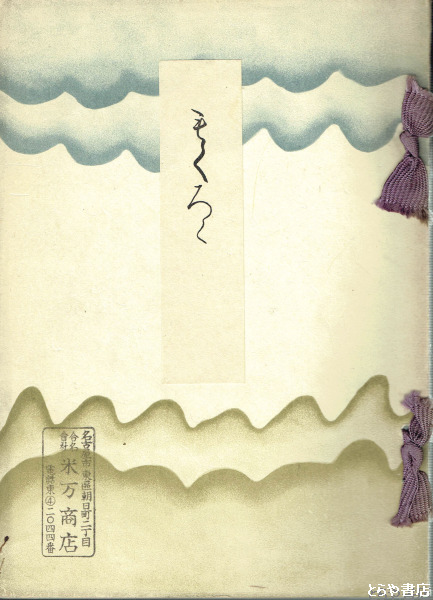 もくろく
名古屋市東區朝日町二丁目
合名會社 米万商店
電話東④二〇四四番
とらや書店